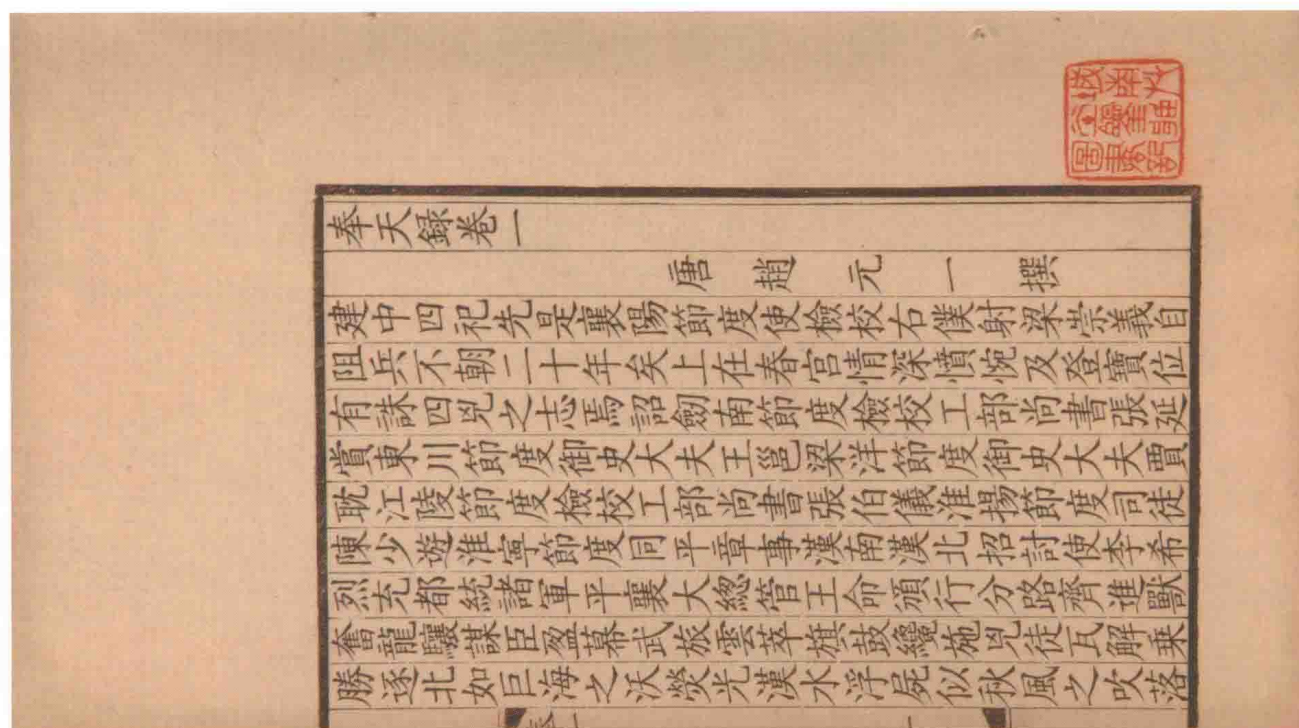 奉天録卷一
唐趙元一撰
建中四祀先是襄陽節度使檢校右僕射梁崇義自
阻兵不朝二十年矣上在春宮情深憤惋及登寶位
有誅四兇之志焉詔劒南節度檢校工部尚書張延
賞東川節度御史大夫王邕梁洋節度御史大夫賈
耽江陵節度檢校工部尚書張伯儀淮揚節度司徒
陳少遊淮寧節度同平章事漢南漢北招討使李希
烈充都統諸軍平襄大總管王命頒行分路齊進獸
奮龍驤謀臣盈幕武旅雲萃旗鼓纔施兇徒瓦解乗
勝逐北如巨海之沃熒光漢水浮屍似秋風之吹落